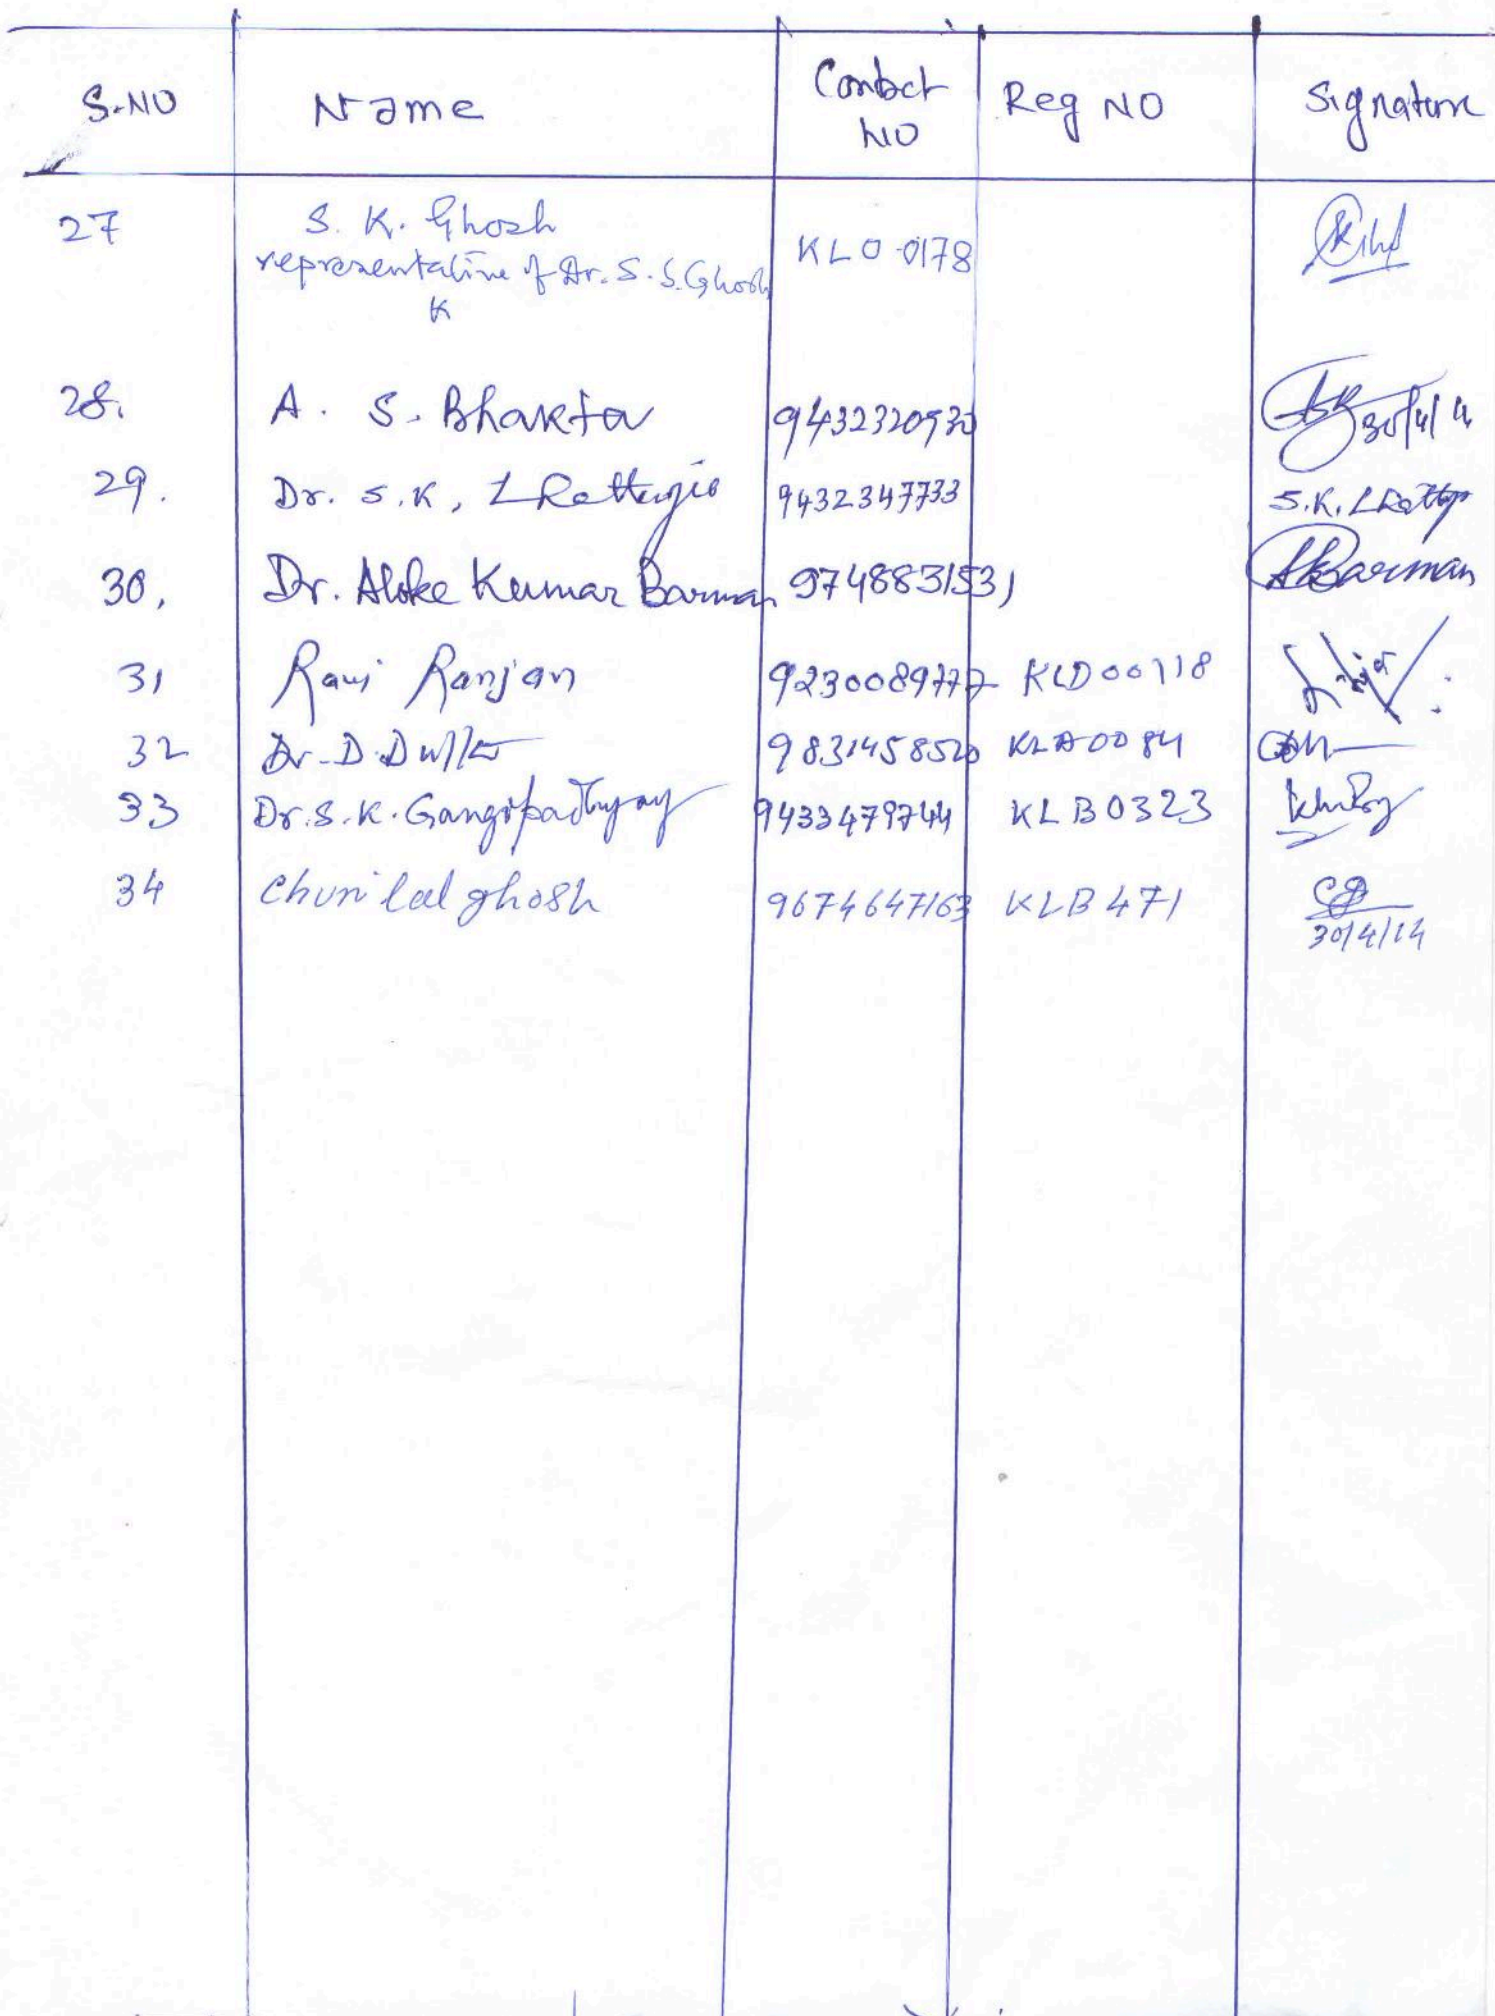 S.NO Name Contact NO Reg NO Signature
27 S. K. Ghosh KLO-0178
representative of Dr. S. S. Ghosh
K
28. A. S. Bhakta 9432320930 30/4/14
29. Dr. S.K. Chatterjee 9432347733 S.K. Chatterjee
30. Dr. Aloke Kumar Barman 9748831531 AKBarman
31 Ravi Ranjan 9230089777 KLD00718
32 Dr. D. Dutta 9831458520 KLA0084
33 Dr. S. K. Gangopadhyay 9433479744 KLB0323
34 Chuni lal ghosh 9674647163 KLB471
30/4/14